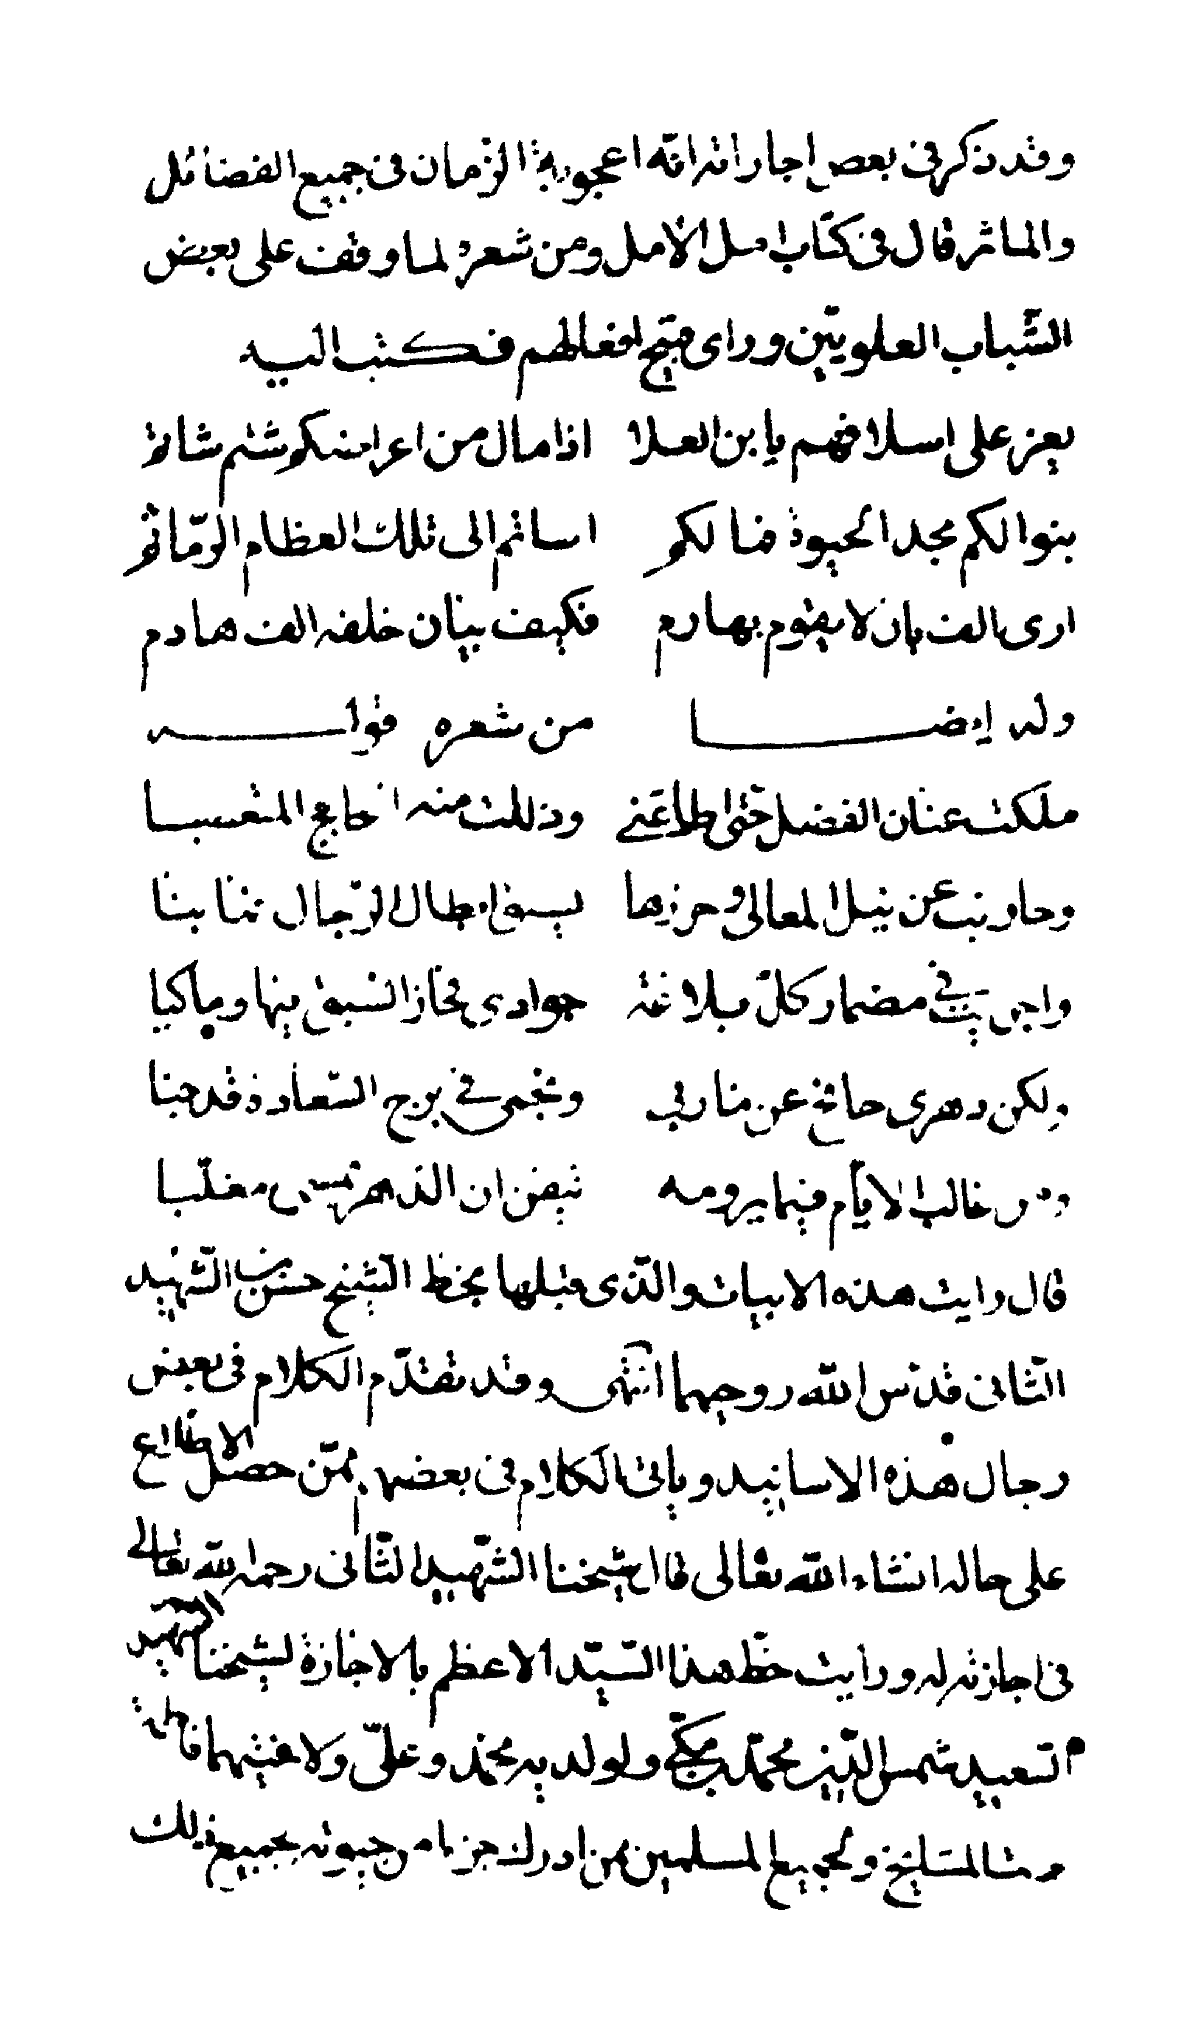 وقد ذكر في بعض اجازاته انه اعجوبة الزمان في جميع الفضائل
والماثر قال في كتاب امل الامل ومن شعره لما وقف على بعض
الشباب العلويين وراى قبيح افعالهم فكتب اليه
يعز على اسلافهم يا بن العلا اذا مال من اعراضكم شتم شاتم
بنوا لكم مجد الحيوة فما لكم اساتم الى تلك العظام الرمائم
ارى الف بان لا يقوم بهادم فكيف ببان خلفه الف هادم
وله ايضا من شعره قوله
ملكت عنان الفضل حتى اطاعني وذللت منه الجامح المتصعبا
وحاربت عن نيل المعالي وحزتها بسيفي ابطال الرجال فما نبا
واجريت في مضمار كل بلاغة جوادي فحاز السبق فيها وما كبا
ولكن دهري جامح عن ماربي ونجمي في برج السعادة قد خبا
ومن غالب الايام فيما يرومه تيقن ان الدهر يمسى مغلبا
قال رايت هذه الابيات والذي قبلها بخط الشيخ حسن بن الشهيد
الثاني قدس الله روحهما انتهى وقد تقدم الكلام في بعض
رجال هذه الاسانيد وياتي الكلام في بعضهم ممن حصل الاطلاع
على حاله انشاء الله تعالى قال شيخنا الشهيد الثاني رحمه الله تعالى
في اجازته له ورايت خط هذا السيد الاعظم بالاجازة لشيخنا الشهيد
السعيد شمس الدين محمد بن مكي ولولديه محمد وعلي ولاختهما فاطمة
ام المشايخ ولجميع المسلمين ممن ادرك جزءا من حيوته بجميع ذلك